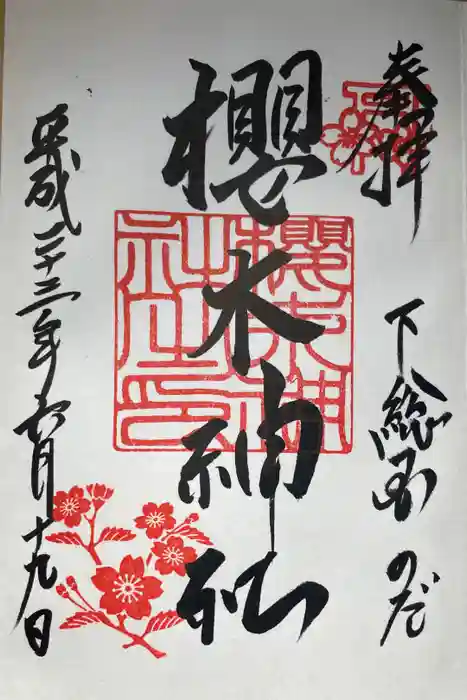 奉拝
下総国 のだ
櫻木神社
櫻木神社之印
平成二十三年六月十九日